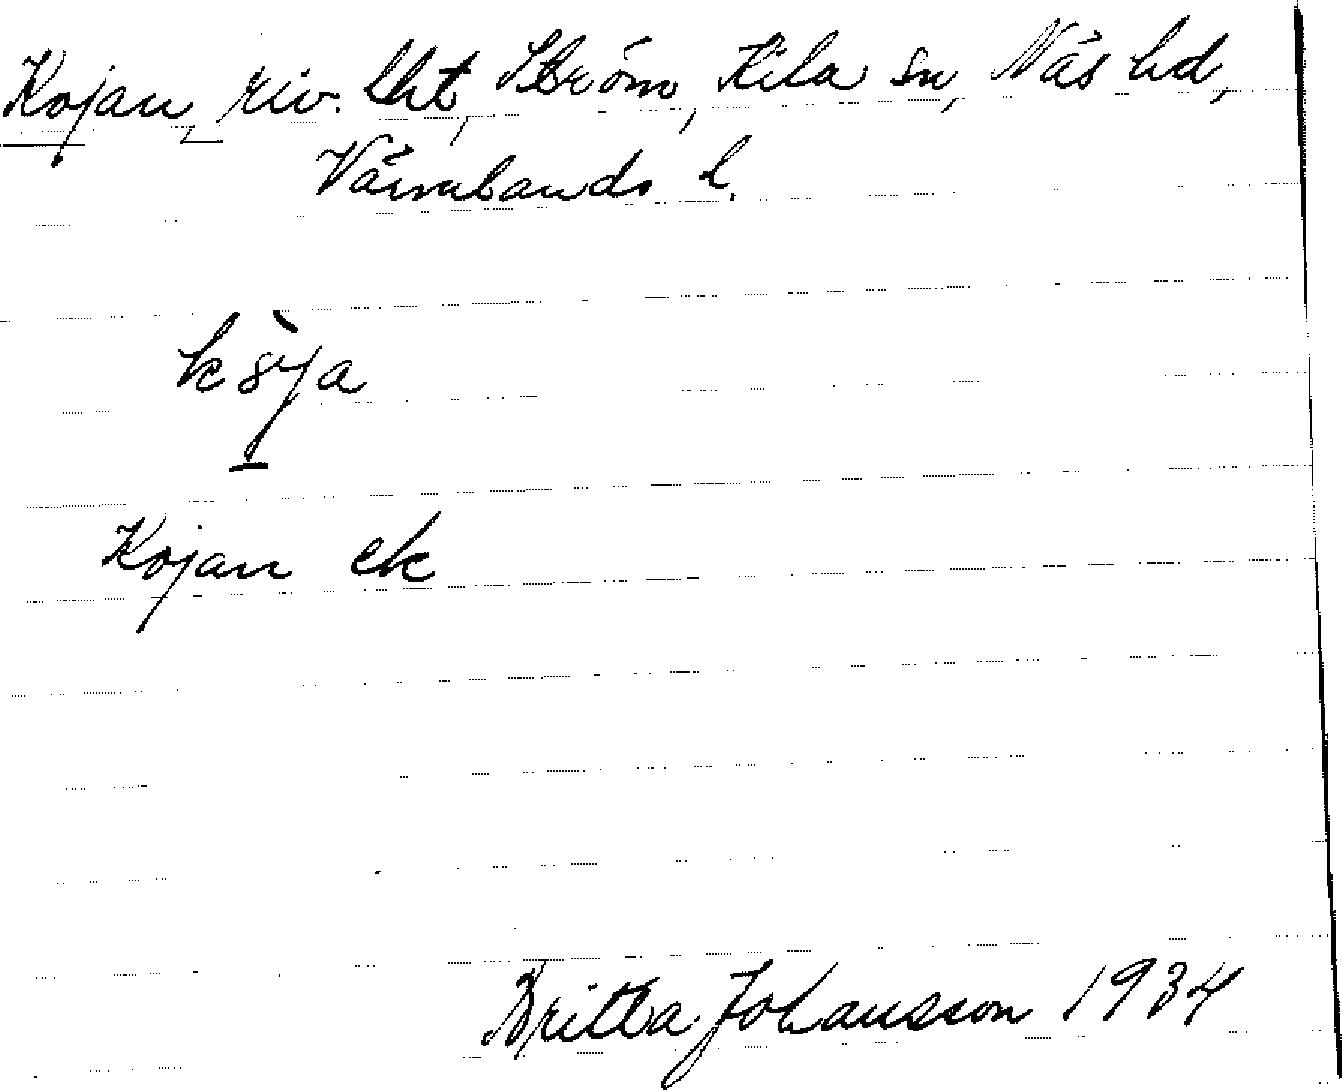 Kojan, riv. lht, Ström, Kila sn, Näs hd,
Värmlands l.
Kojan ek
Britta Johansson 1934